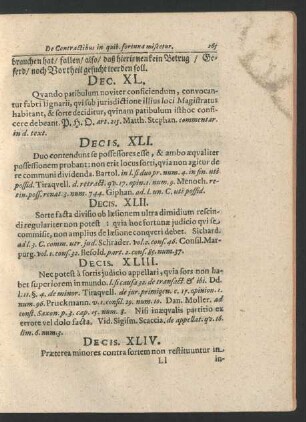 De Contractibus in quib. fortuna miscetur. 265
brauchen hat/ sollen/ also/ daß hierinnen kein Betrug / Ge-
ferd/ noch Vortheil gesucht werden soll.
DEC. XL.
Qvando patibulum noviter conficiendum, convocan-
tur fabri lignarii, qvi sub jurisdictione illius loci Magistratus
habitant, & sorte deciditur, qvinam patibulum isthoc confi-
cere debeant. P. H. O. art. 215. Matth. Stephan. commentar.
in d. text.
DECIS. XLI.
Duo contendunt se possessores esse, & ambo æqvaliter
possessionem probant: non erit locus sorti, qvia non agitur de
re communi dividenda. Bartol. in l. si duo pr. num. 4. in fin. uti
possid. Tiraqvell. d. retract. §. 17. opin. 2. num. 9. Menoch. re-
tin. poss. remed. 3. num. 744. Giphan. ad l. un. C. uti possid.
DECIS. XLII.
Sorte facta divisio ob læsionem ultra dimidium rescin-
di regulariter non potest: qvia hoc fortunæ judicio qvi se
commisit, non amplius de læsione conqveri debet. Sichard.
ad l. 3. C. comm. utr. jud. Schrader. vol. 2. cons. 46. Consil. Mar-
purg. vol. 1. cons. 28. Besold. part. 2. cons. 85. num. 37.
DECIS. XLIII.
Nec potest à sortis judicio appellari, qvia sors non ha-
bet superiorem in mundo. l. si causa 30. de transact. & ibi. Dd.
l. 11. §. 4. de minor. Tiraqvell. de jur. primigen. q. 17. opinion. 1.
num. 96. Pruckmann. v. 1. consil. 31. num. 10. Dan. Moller. ad
const. Saxon. p. 3. cap. 15. num. 5. Nisi inæqvalis partitio ex
errore vel dolo facta. Vid. Sigism. Scaccia. de appellat. qv. 16.
lim. 6. num. 3.
DECIS. XLIV.
Præterea minores contra sortem non restituuntur in
Ll in-